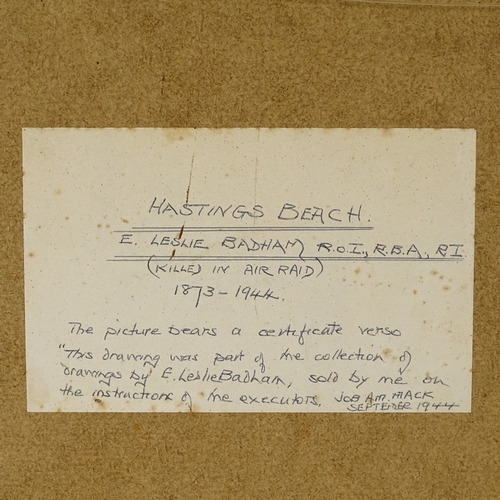 HASTINGS BEACH.
E. LESLIE BADHAM, R.O.I., R.B.A., R.I
(KILLED IN AIR RAID)
1873-1944.
The picture bears a certificate verso
"This drawing was part of the collection of
drawings by E. Leslie Badham, sold by me on
the instructions of the executors. JOB AM. MACK
SEPTEMBER 1944